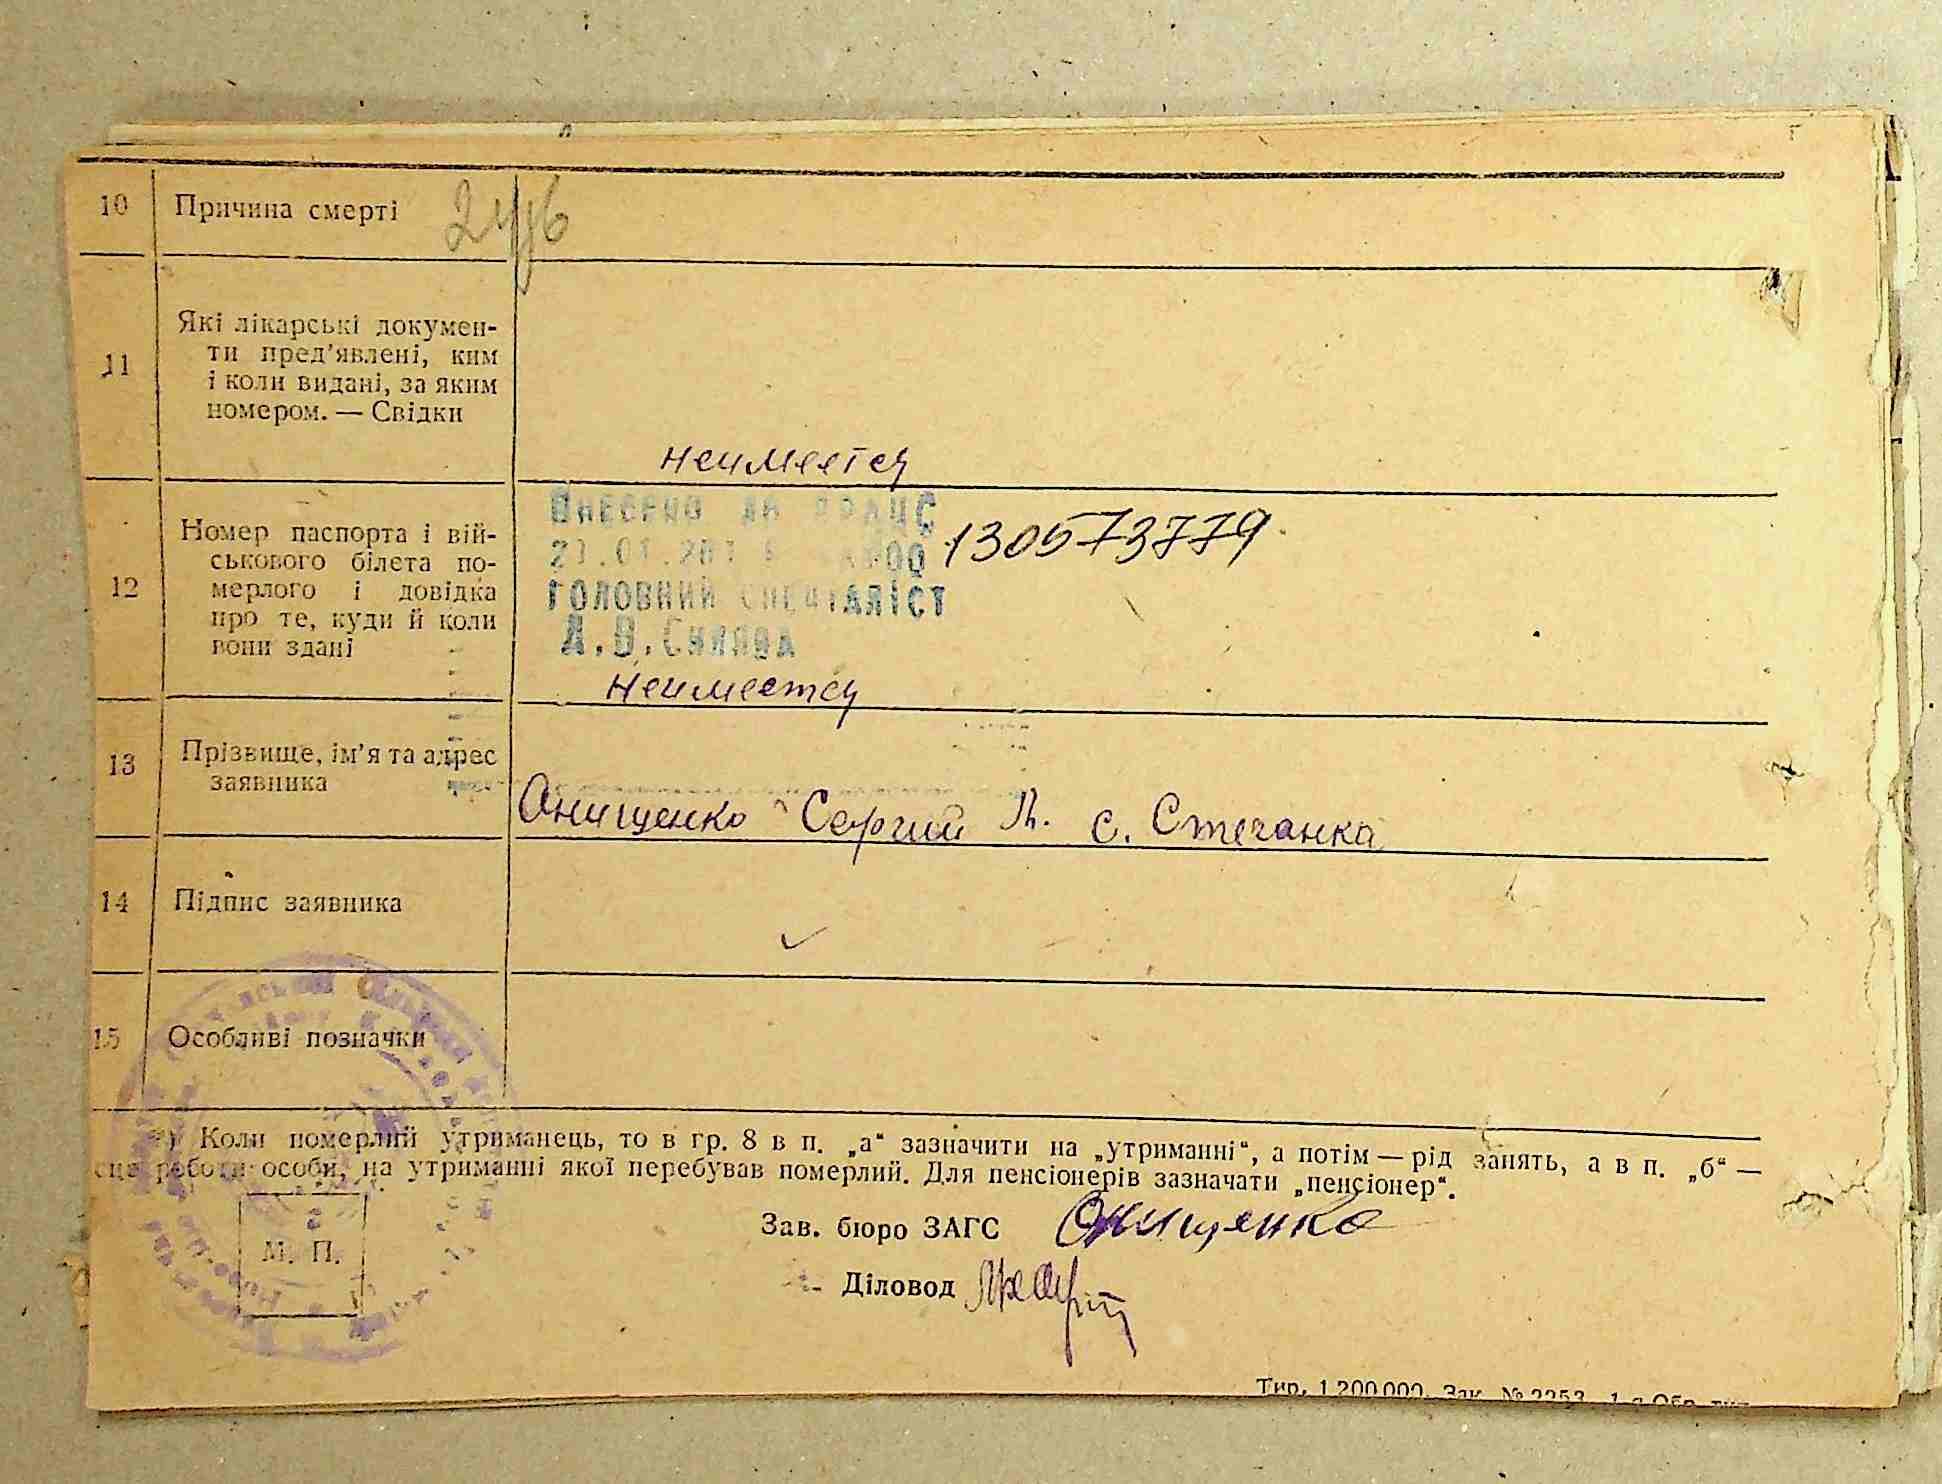 10 Причина смерті
11 Які лікарські докумен-
ти пред'явлені, ким
і коли видані, за яким
номером. — Свідки
неимеется
12 Номер паспорта і вій-
ськового білета по-
мерлого і довідка
про те, куди й коли
вони здані
Внесено до ДРАЦС
130573779
головний спеціаліст
А.В.
неимеется
13 Прізвище, ім'я та адрес
заявника
Онищенко Сергий с. Стечанка
14 Підпис заявника
15 Особливі позначки
*) Коли померлий утриманець, то в гр. 8 в п. „а“ зазначити на „утриманні“, а потім — рід занять, а в п. „б“ —
роботи особи, на утриманні якої перебував померлий. Для пенсіонерів зазначати „пенсіонер“.
Зав. бюро ЗАГС Онищенко
М. П.
Діловод
Тир. 1.200.000. Зак. № 2253